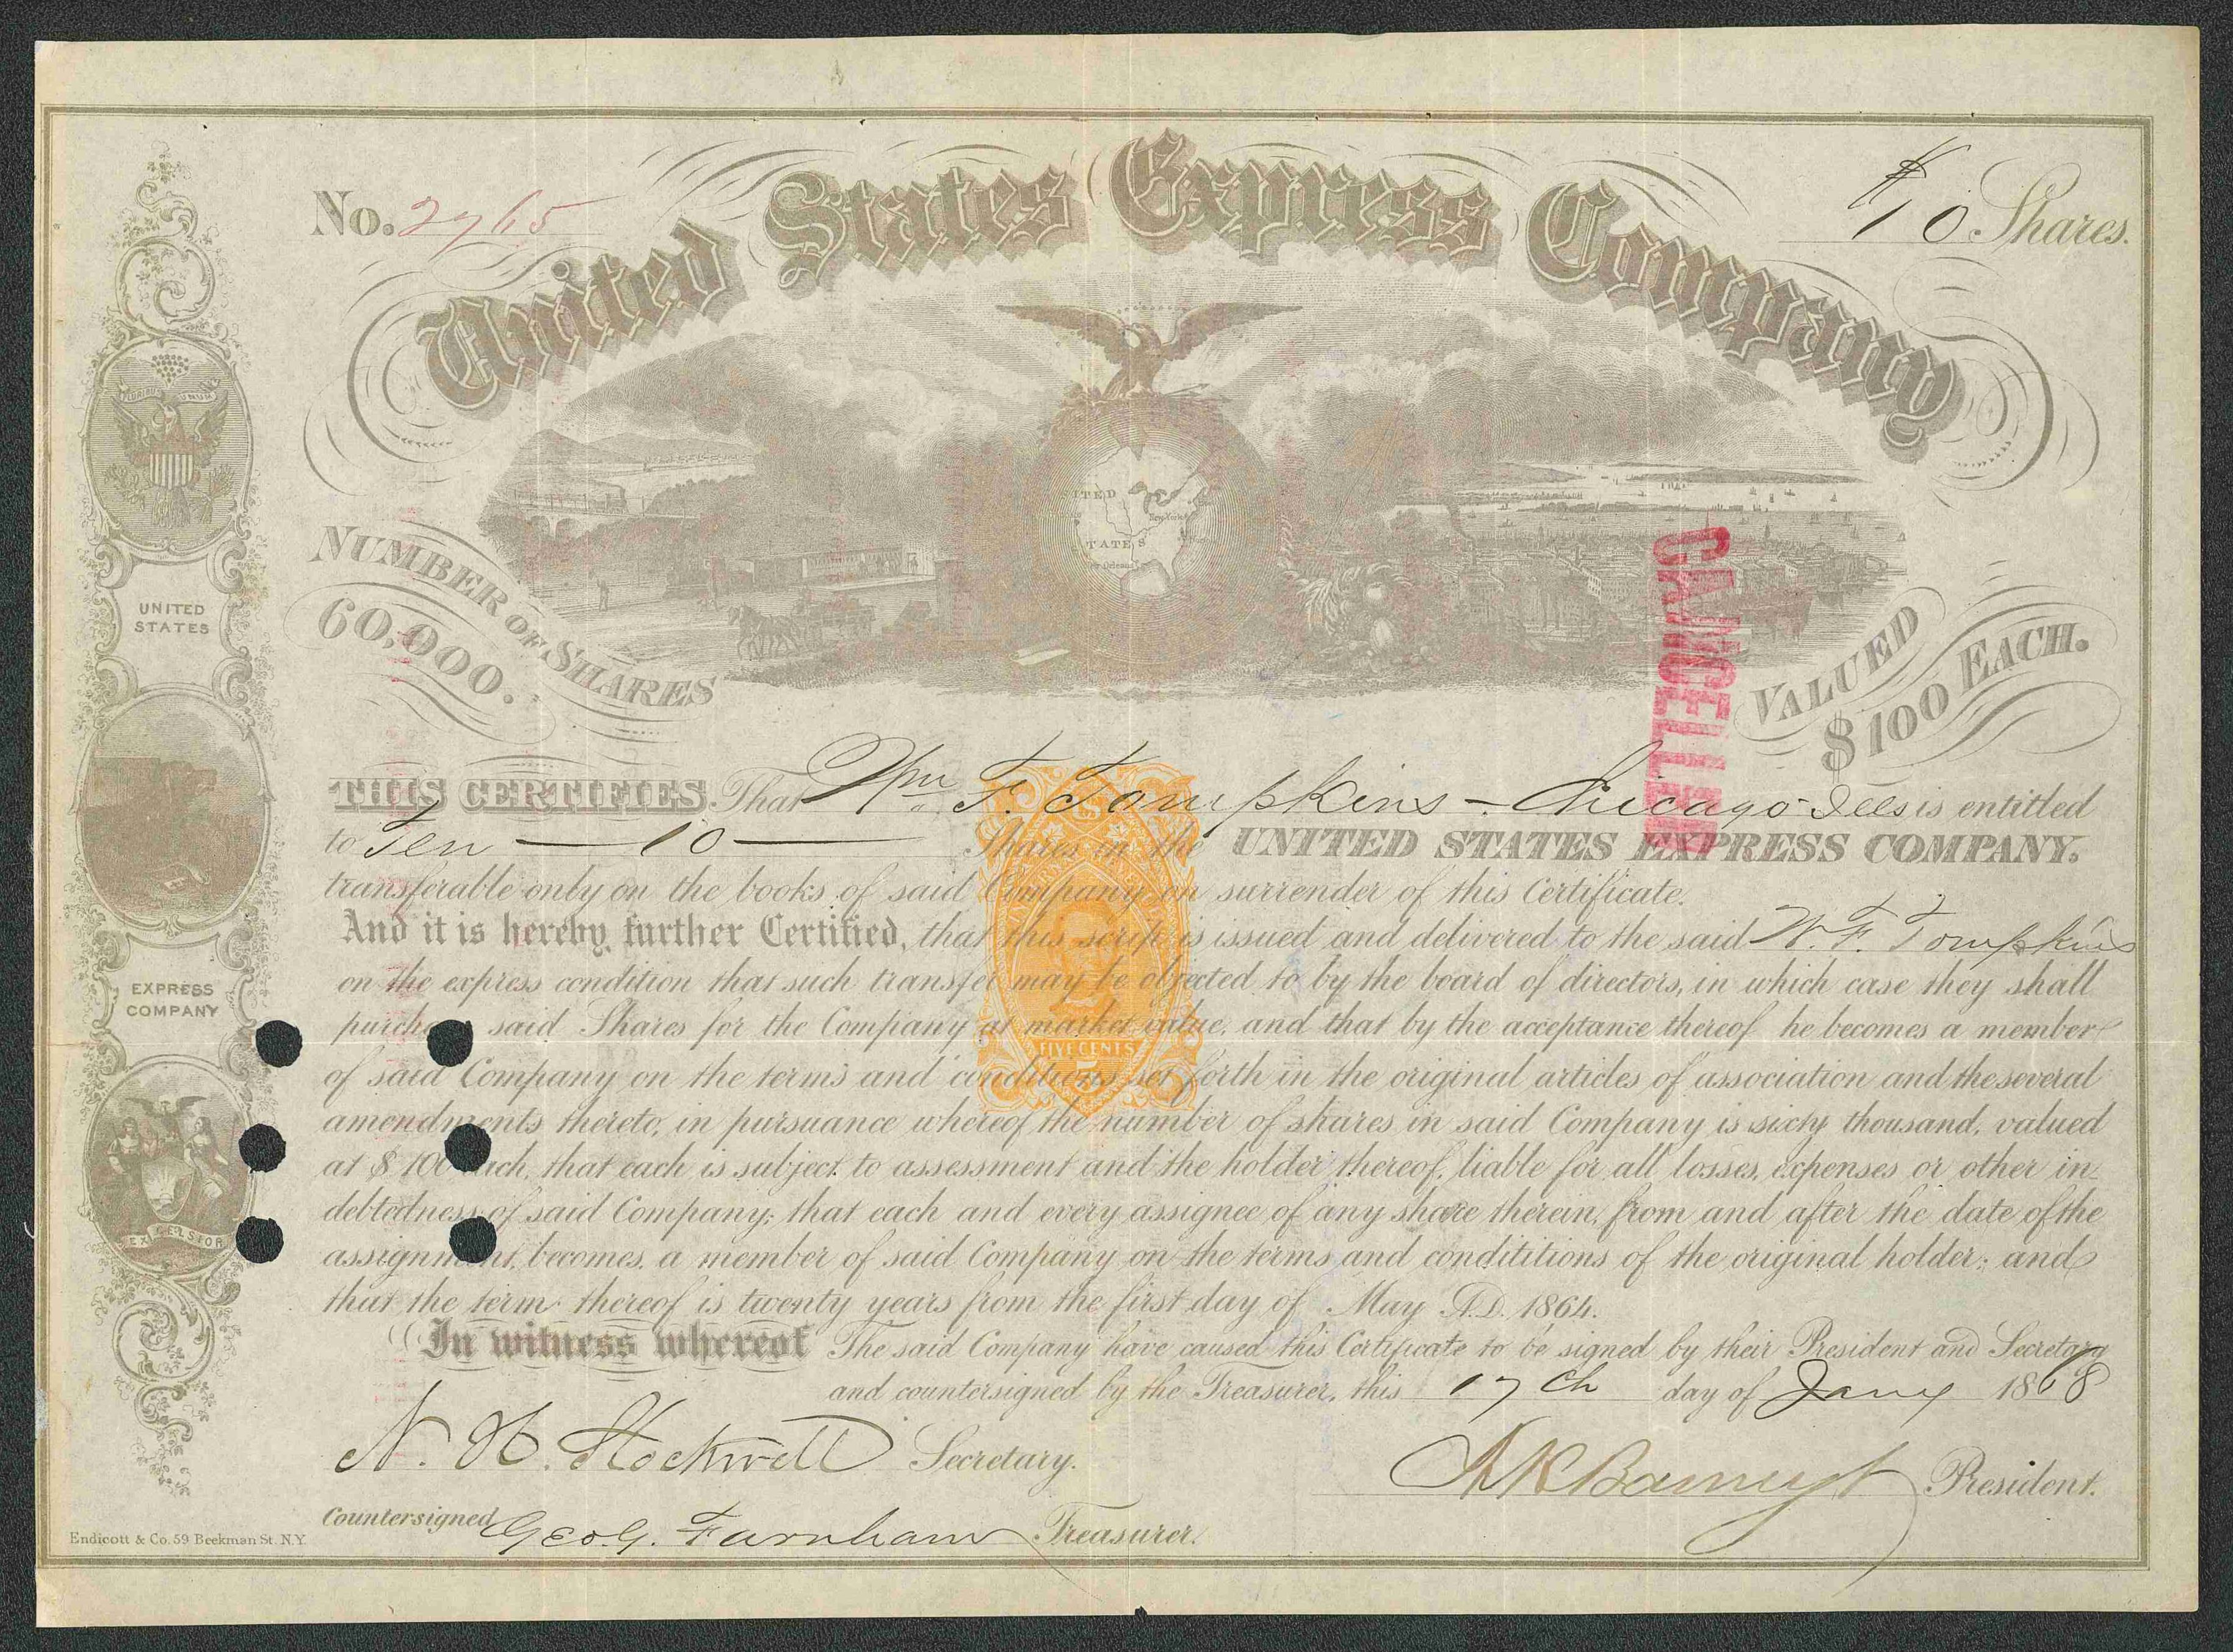 No. 2765
$10 Shares.
United States Express Company
PLURIBUS UNUM
UNITED
STATES
NITED
New York
TATES
Orleans
NUMBER OF SHARES
60,000.
VALUED
$100 EACH.
CANCELLED
THIS CERTIFIES. That Wm F. Tompkins - Chicago Ills is entitled
to Ten — 10 — Shares in the UNITED STATES EXPRESS COMPANY.
transferable only on the books of said Company on surrender of this Certificate.
And it is hereby further Certified, that this scrip is issued and delivered to the said W. F. Tompkins
on the express condition that such transfer may be objected to by the board of directors, in which case they shall
purchase said Shares for the Company at market value, and that by the acceptance thereof he becomes a member
of said Company on the terms and conditions set forth in the original articles of association and the several
amendments thereto, in pursuance whereof the number of shares in said Company is sixty thousand, valued
at $100 each, that each is subject to assessment and the holder thereof, liable for all losses, expenses or other in-
debtedness of said Company; that each and every assignee of any share therein, from and after the date of the
assignment, becomes, a member of said Company on the terms and condititions of the original holder; and
that the term thereof is twenty years from the first day of May A.D. 1864.
In witness whereof The said Company have caused this Certificate to be signed by their President and Secretary
and countersigned by the Treasurer, this 17th day of Jany 1868
N. H. Stockwell Secretary.
President.
Countersigned Geo. G. Farnham Treasurer.
EXPRESS
COMPANY
EXCELSIOR
FIVE CENTS
5
US
Endicott & Co. 59 Beekman St. N.Y.